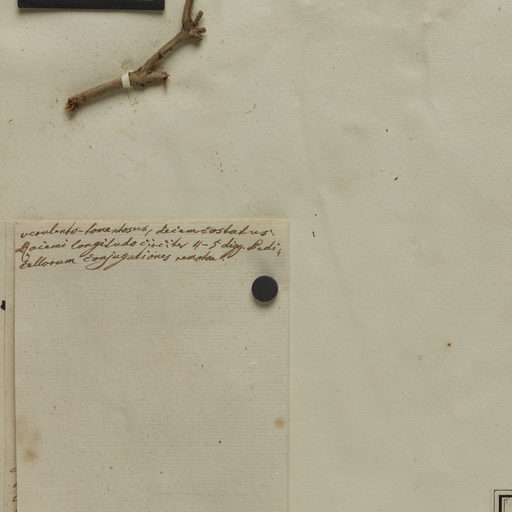 verulento-tomentosus, decemcostatus.
Racemi longitudo circiter 4-5 digg. Pedi,
cellorum conjugationes remotae.